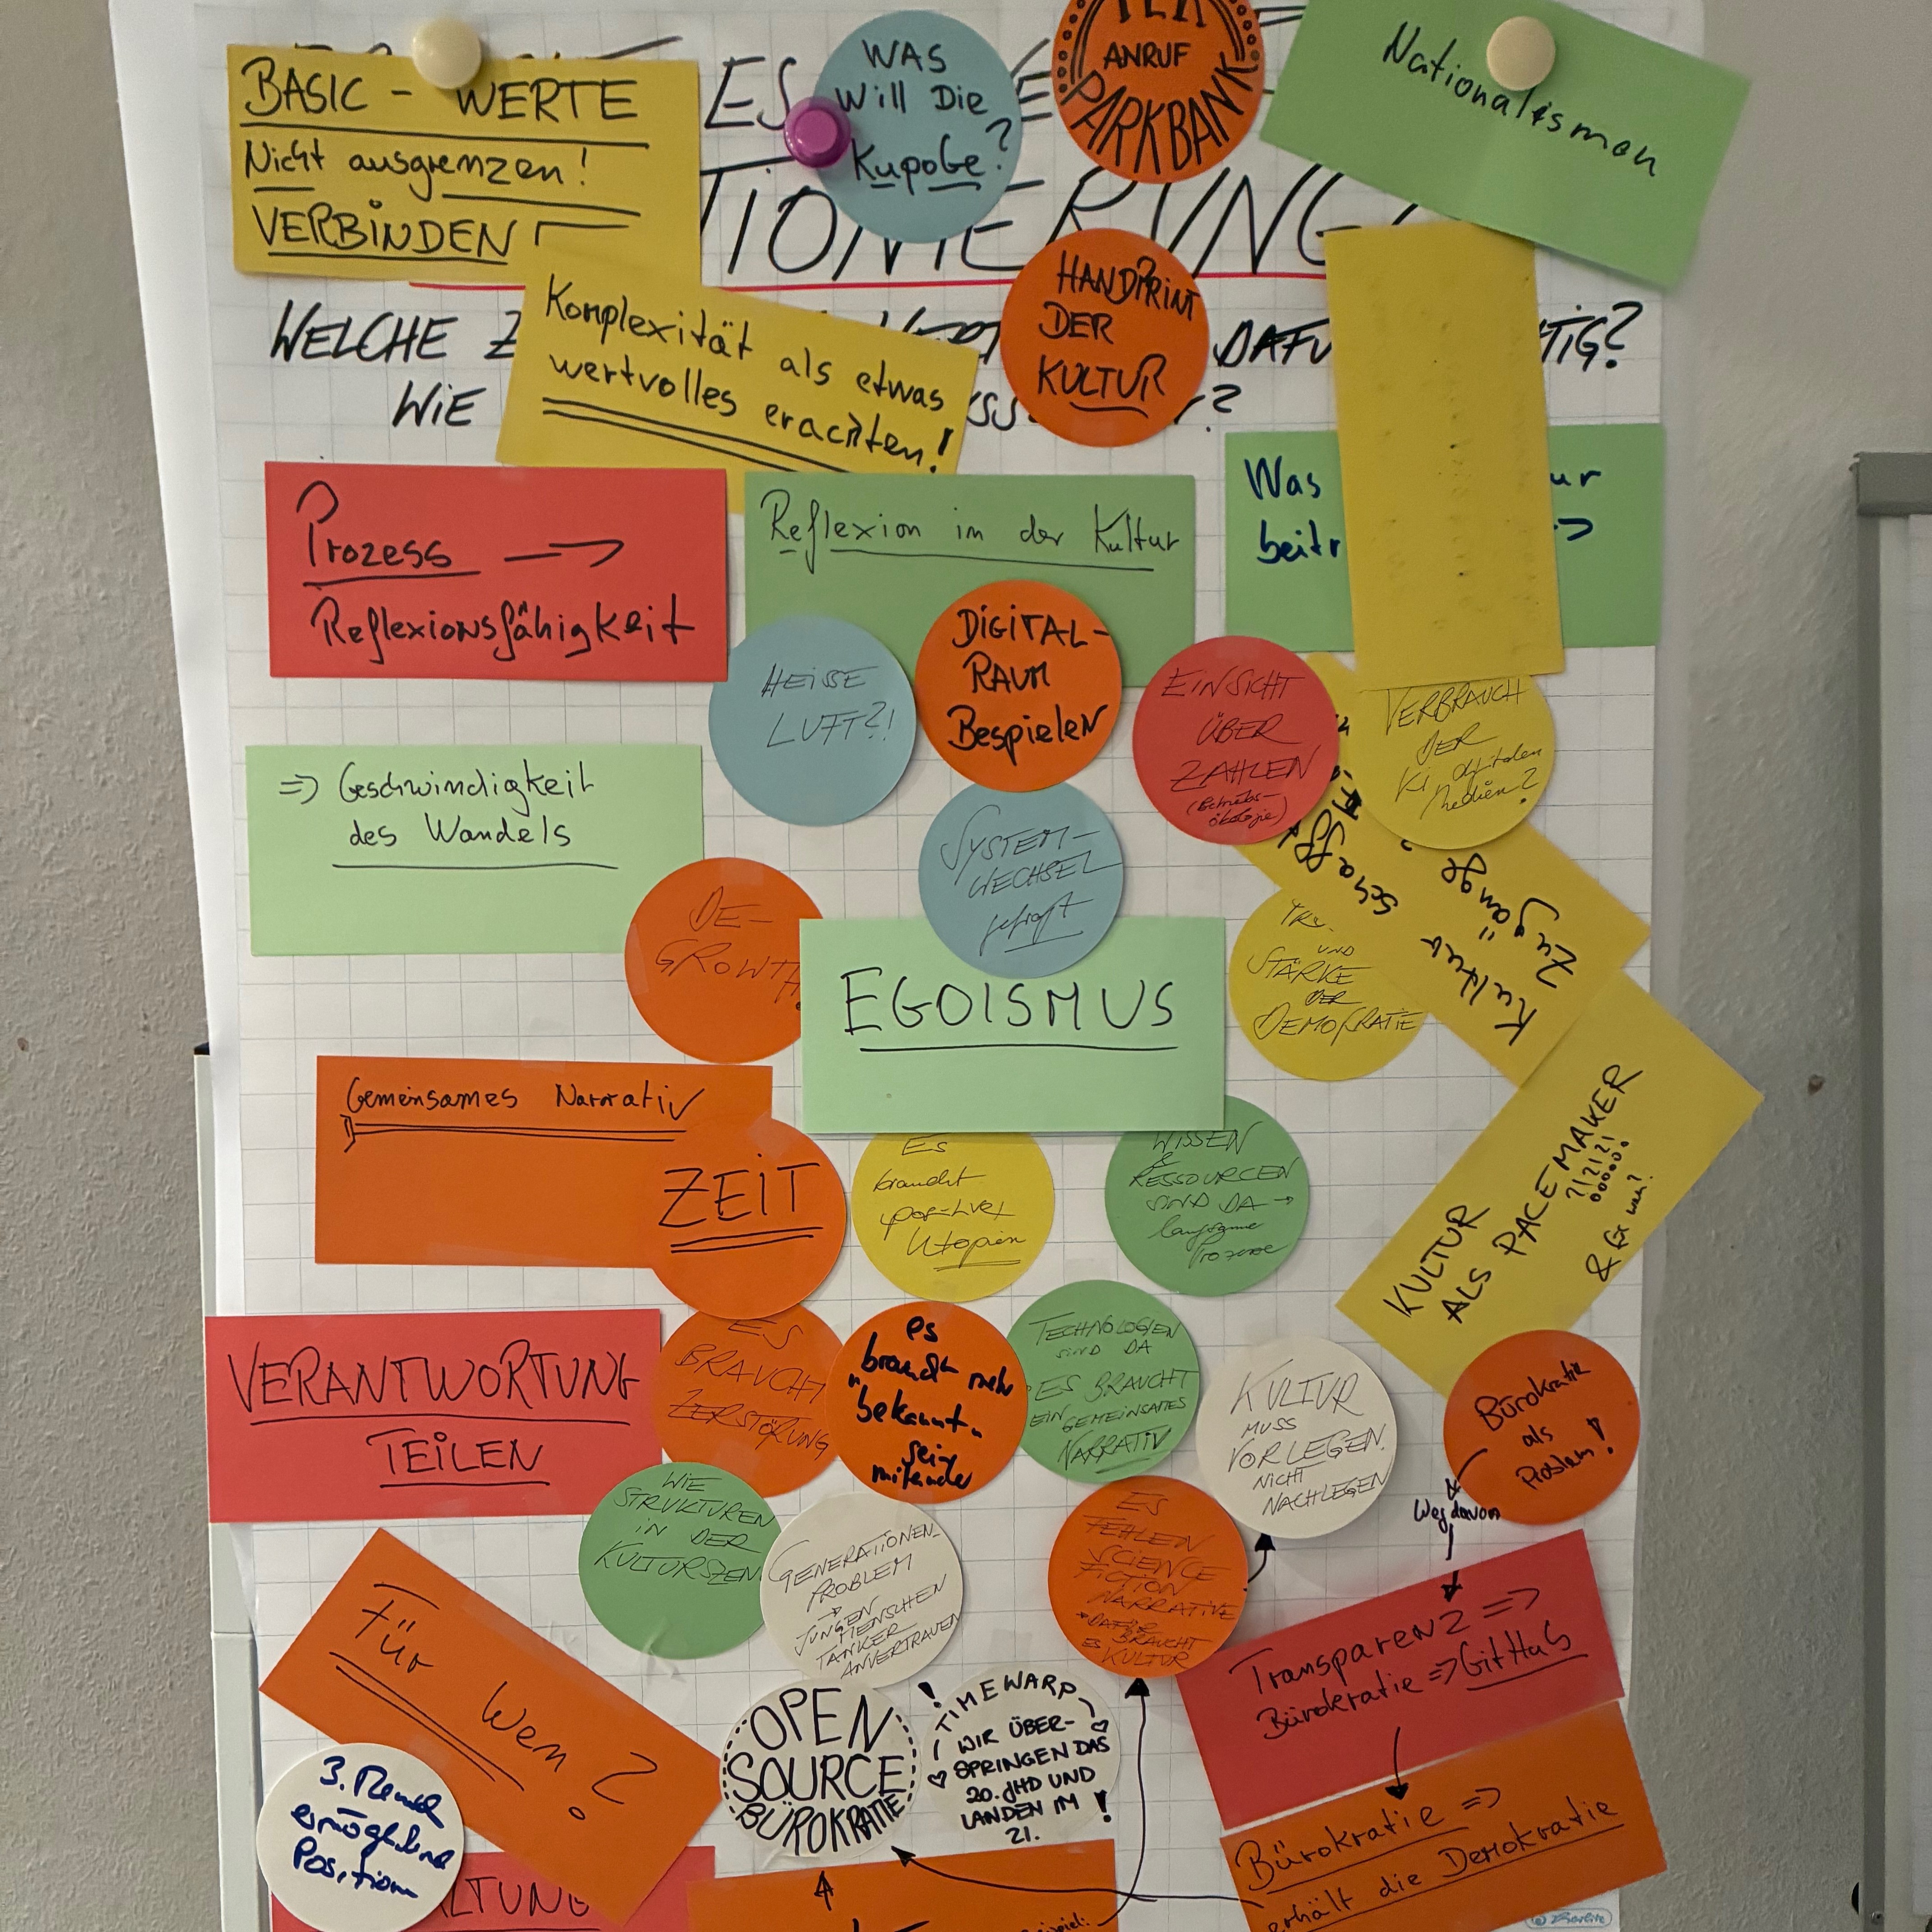 BASIC - WERTE
Nicht ausgrenzen!
VERBINDEN
WAS
Will Die
Kupobe?
ANRUF
PARKBANK
Nationalismen
ES
TIONIERUNG
HANDPRINT
DER
KULTUR
WELCHE Z
DAFÜ
TIG?
WIE
Komplexität als etwas
wertvolles erachten!
Prozess →
Reflexionsfähigkeit
Reflexion in der Kultur
Was
ur
beitr
=>
HEISSE
LUFT?!
DIGITAL-
RAUM
BespieleN
EINSICHT
ÜBER
ZAHLEN
(Betriebs-
ökologie)
VERBRAUCH
DER
KI digitalen
Medien?
=> Geschwindigkeit
des Wandels
SYSTEM-
WECHSEL
gefragt
DE-
GROWTH!
Kultur schafft
Zugänge
UND
STÄRKE
DER
DEMOKRATIE
EGOISMUS
Gemeinsames Narrativ
ZEIT
ES
braucht
positive
Utopien
WISSEN
&
RESSOURCEN
SIND DA →
langsame
Prozesse
KULTUR
ALS PACEMAKER
?!?!?!
VERANTWORTUNG
TEILEN
ES
BRAUCHT
ZERSTÖRUNG
es
braucht mehr
"bekannt-
sein
miteinander
TECHNOLOGIEN
SIND DA
ES BRAUCHT
EIN
GEMEINSAMES
NARRATIV
KULTUR
MUSS
VORLEGEN.
NICHT
NACHLEGEN
Bürokratie
als
Problem!
Weg davon
WIE
STRUKTUREN
IN DER
KULTURSZEN
GENERATIONEN-
PROBLEM
→
JUNGEN
MENSCHEN
TANKER
ANVERTRAUEN
ES
FEHLEN
SCIENCE
FICTION
NARRATIVE
DAFÜR
BRAUCHT
ES
KULTUR
Transparenz =>
Bürokratie => GitHub
Für Wen?
3. Mensch
ermöglichend
Position
OPEN
SOURCE
BÜROKRATIE
! TIMEWARP
WIR ÜBER-
SPRINGEN DAS
20. JHD UND
LANDEN IM
21. !
Bürokratie =>
erhält die Demokratie
LTUNG